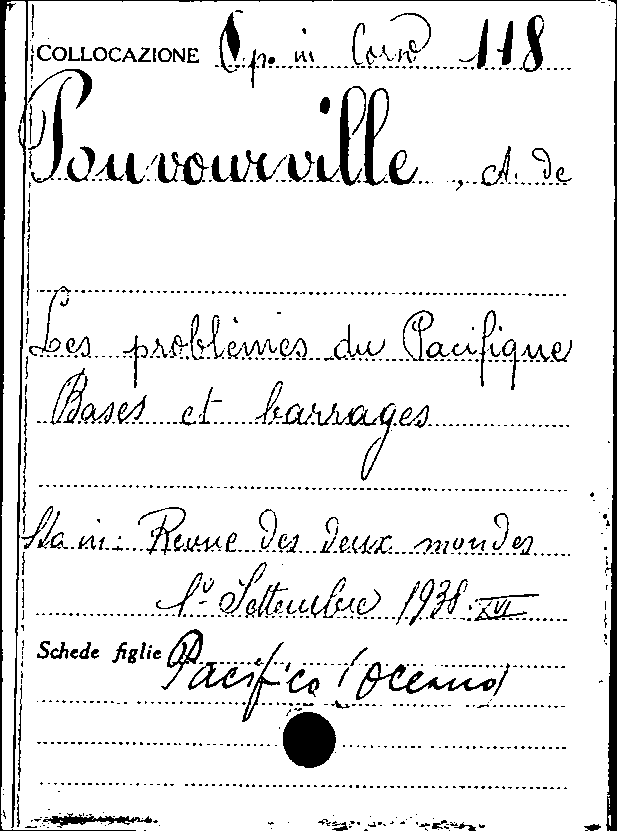 COLLOCAZIONE Op. in Corn 118
Pouvourville, A. de
Les problèmes du Pacifique
Bases et barrages
Sta in: Revue des deux mondes
1º Settembre 1938.XVI
Schede figlie Pacifico (Oceano)